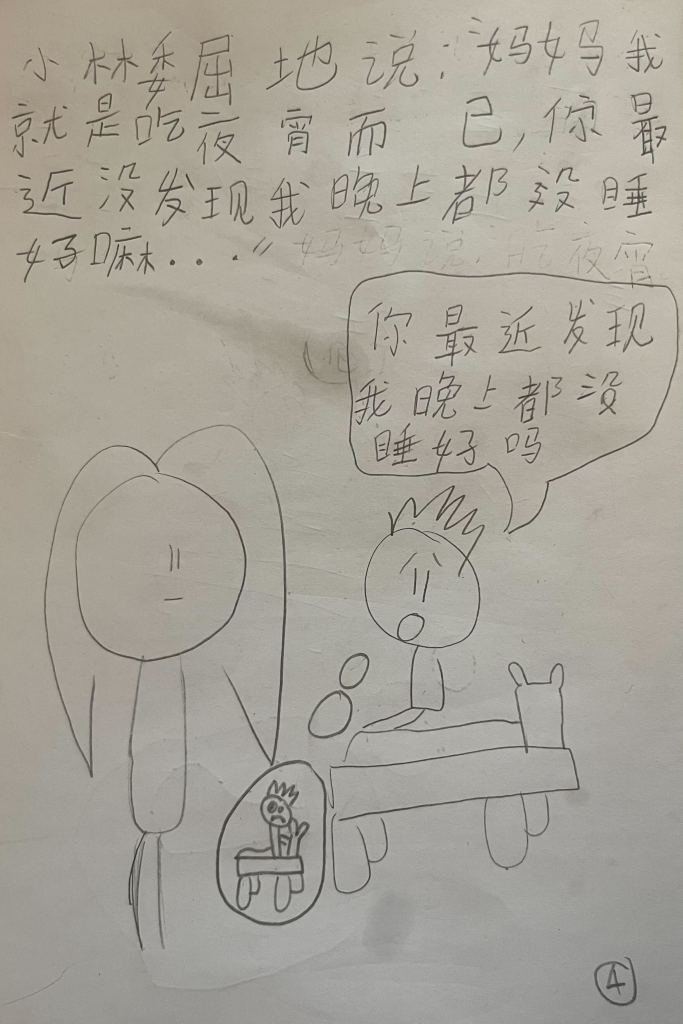 小林委屈地说:“妈妈我
就是吃夜宵而已,你最
近没发现我晚上都没睡
好嘛...”妈妈说:吃夜宵
你最近发现
我晚上都没
睡好吗
4